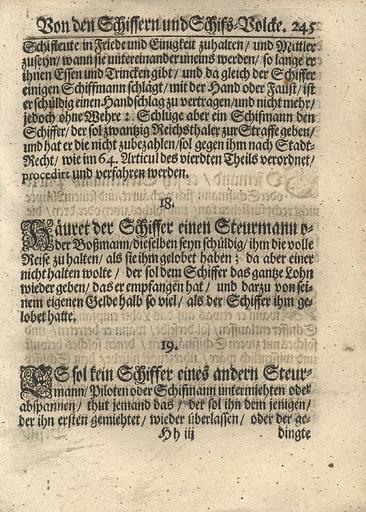 Von den Schiffern und Schifs-Volcke. 245
Schifleute in Friede und Einigkeit zuhalten / und Mittler
zuseyn / wann sie untereinander uneins werden / so lange er
ihnen Essen und Trincken gibt / und da gleich der Schiffer
einigen Schiffmann schlägt / mit der Hand oder Faust / ist
er schüldig einen Handschlag zu vertragen / und nicht mehr /
jedoch ohne Wehre : Schlüge aber ein Schifmann den
Schiffer / der sol zwantzig Reichsthaler zur Straffe geben /
und hat er die nicht zubezahlen / sol gegen ihm nach Stadt-
Recht / wie im 64. Articul des vierdten Theils verordnet /
procedirt und verfahren werden.
18.
der Schiffer einen Steurmann o-
der Boßmann / dieselben seyn schüldig / ihm die volle
Reise zu halten / als sie ihm gelobet haben ; da aber einer
nicht halten wolte / der sol dem Schiffer das gantze Lohn
wieder geben / das er empfangen hat / und darzu von sei-
nem eigenen Gelde halb so viel / als der Schiffer ihm ge-
lobet hatte.
19.
ES sol kein Schiffer eines andern Steur-
mann / Piloten oder Schifmann untermiehten oder
abspannen / thut jemand das / der sol ihn dem jenigen /
der ihn ersten gemiehtet / wieder überlassen / oder der ge-
Hh iij dingte